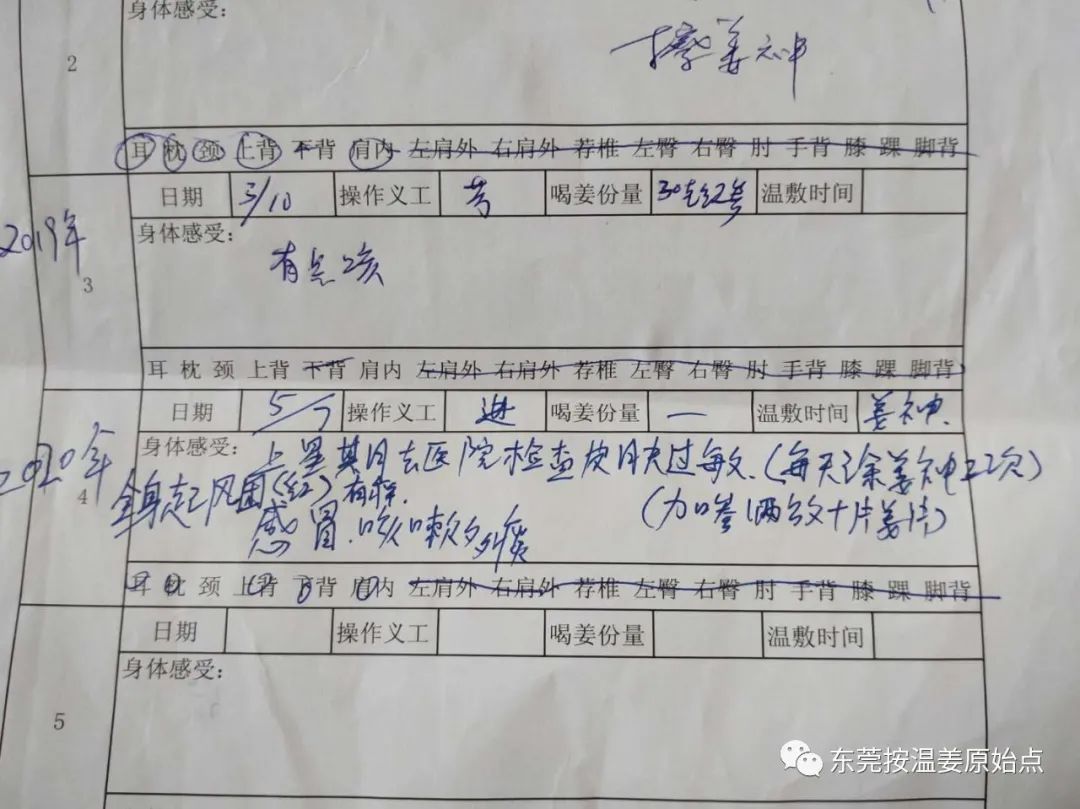 身体感受:
2
擦姜神
耳 枕 颈 上背 下背 肩内 左肩外 右肩外 荐椎 左臀 右臀 肘 手背 膝 踝 脚背
日期 5/10 操作义工 芳 喝姜份量 30克红参 温敷时间
2019年
3
身体感受:
有点咳
耳 枕 颈 上背 下背 肩内 左肩外 右肩外 荐椎 左臀 右臀 肘 手背 膝 踝 脚背
日期 5/7 操作义工 进 喝姜份量 一 温敷时间 姜神
2020年
4
身体感受: 上星其月去医院检查皮肤过敏.(每天涂姜神2次)
全身起风团(红)有痒. (加参调敷十片姜片)
感冒.咳嗽多痰
耳 枕 颈 上背 下背 肩内 左肩外 右肩外 荐椎 左臀 右臀 肘 手背 膝 踝 脚背
日期 操作义工 喝姜份量 温敷时间
5
身体感受:
东莞按温姜原始点